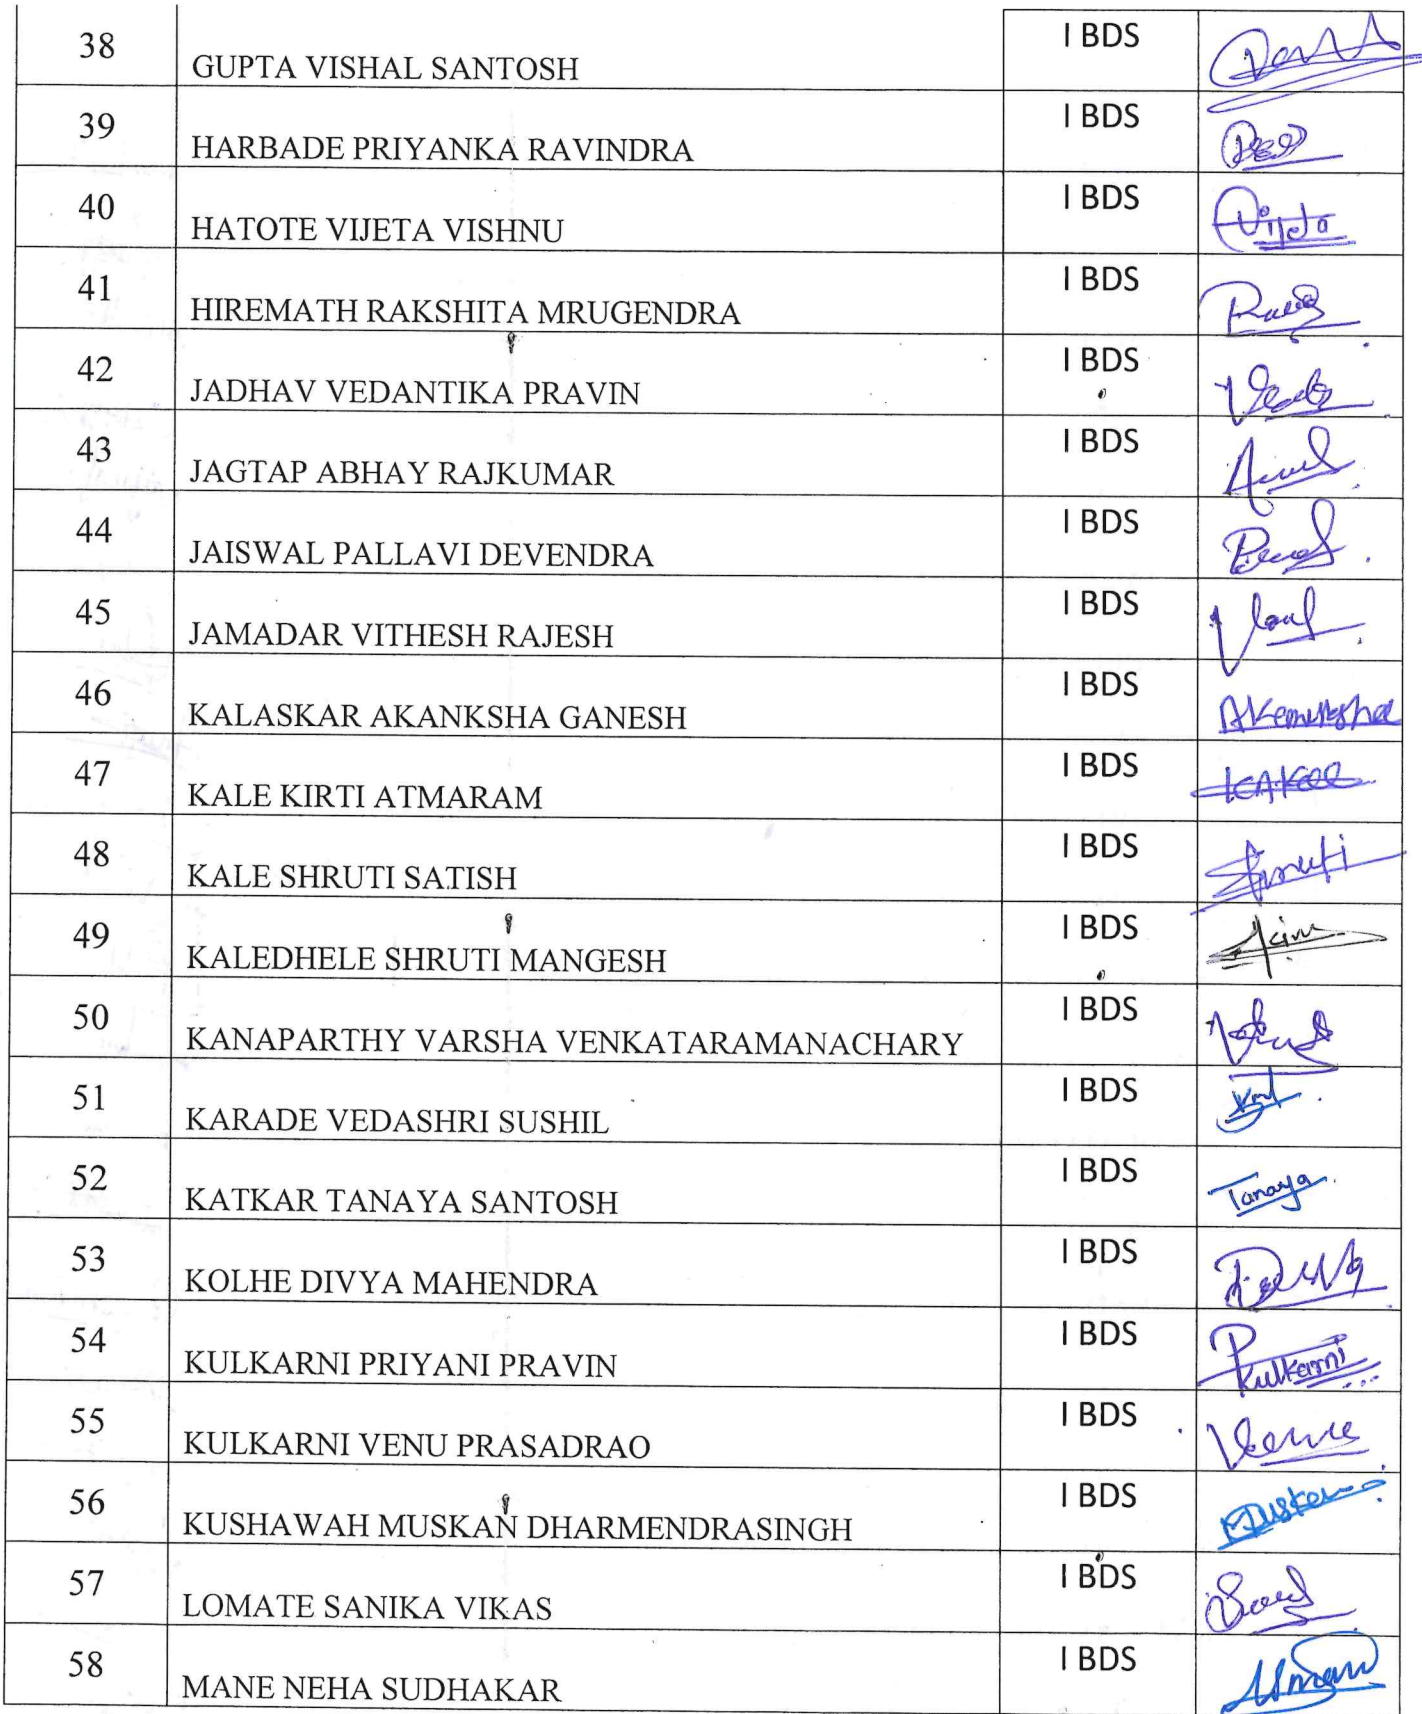 38 GUPTA VISHAL SANTOSH I BDS
39 HARBADE PRIYANKA RAVINDRA I BDS
40 HATOTE VIJETA VISHNU I BDS Vijeta
41 HIREMATH RAKSHITA MRUGENDRA I BDS
42 JADHAV VEDANTIKA PRAVIN I BDS
43 JAGTAP ABHAY RAJKUMAR I BDS
44 JAISWAL PALLAVI DEVENDRA I BDS
45 JAMADAR VITHESH RAJESH I BDS
46 KALASKAR AKANKSHA GANESH I BDS
47 KALE KIRTI ATMARAM I BDS
48 KALE SHRUTI SATISH I BDS Shruti
49 KALEDHELE SHRUTI MANGESH I BDS
50 KANAPARTHY VARSHA VENKATARAMANACHARY I BDS
51 KARADE VEDASHRI SUSHIL I BDS
52 KATKAR TANAYA SANTOSH I BDS Tanaya
53 KOLHE DIVYA MAHENDRA I BDS
54 KULKARNI PRIYANI PRAVIN I BDS PKulkarni
55 KULKARNI VENU PRASADRAO I BDS
56 KUSHAWAH MUSKAN DHARMENDRASINGH I BDS
57 LOMATE SANIKA VIKAS I BDS
58 MANE NEHA SUDHAKAR I BDS